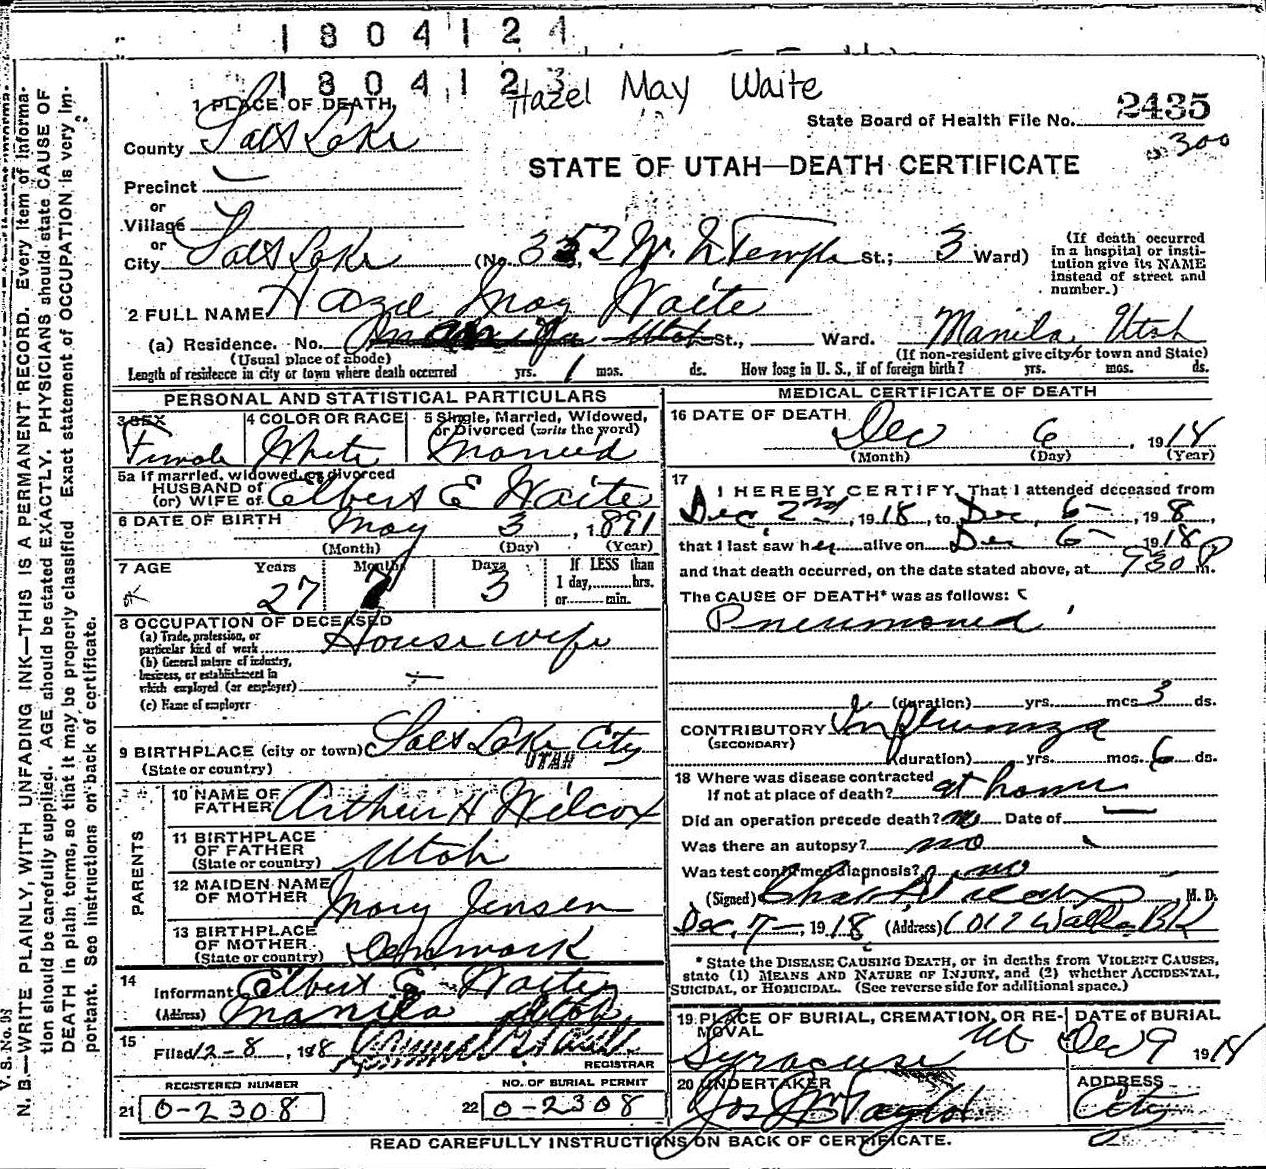 1804124
1804123
Hazel May Waite
1 PLACE OF DEATH
State Board of Health File No. 2435
300
County Salt Lake
STATE OF UTAH—DEATH CERTIFICATE
Precinct
or
Village
or
City Salt Lake (No. 352 W. N Temple St.; 3 Ward)
(If death occurred in a hospital or institution give its NAME instead of street and number.)
2 FULL NAME Hazel May Waite
(a) Residence. No. St., Ward. Manila, Utah
(Usual place of abode) (If non-resident give city or town and State)
Length of residence in city or town where death occurred yrs. 1 mos. ds. How long in U. S., if of foreign birth? yrs. mos. ds.
PERSONAL AND STATISTICAL PARTICULARS
3 SEX 4 COLOR OR RACE 5 Single, Married, Widowed, or Divorced (write the word)
Female White Married
5a If married, widowed or divorced
HUSBAND OF
(or) WIFE OF Elbert E Waite
6 DATE OF BIRTH May 3, 1891
(Month) (Day) (Year)
7 AGE Years Months Days If LESS than
1 day, hrs.
or min.
27 7 3
8 OCCUPATION OF DECEASED
(a) Trade, profession, or particular kind of work Housewife
(b) General nature of industry, business, or establishment in which employed (or employer)
(c) Name of employer
9 BIRTHPLACE (city or town) Salt Lake City
(State or country) UTAH
PARENTS
10 NAME OF FATHER Arthur H Wilcox
11 BIRTHPLACE OF FATHER (State or country) Utah
12 MAIDEN NAME OF MOTHER Mary Jensen
13 BIRTHPLACE OF MOTHER (State or country) Denmark
14 Informant Elbert E Waite
(Address) Manila Utah
15 Filed 12-8, 1918
REGISTRAR
REGISTERED NUMBER NO. OF BURIAL PERMIT
21 0-2308 22 0-2308
MEDICAL CERTIFICATE OF DEATH
16 DATE OF DEATH Dec 6, 1918
(Month) (Day) (Year)
17 I HEREBY CERTIFY, That I attended deceased from
Dec 2nd, 1918, to Dec. 6-, 1918,
that I last saw her alive on Dec 6- 1918
and that death occurred, on the date stated above, at 930 P m.
The CAUSE OF DEATH* was as follows:
Pneumonia
(duration) yrs. mos. 3 ds.
CONTRIBUTORY Influenza
(SECONDARY)
(duration) yrs. mos. 6 ds.
18 Where was disease contracted
If not at place of death? at home
Did an operation precede death? no Date of
Was there an autopsy? no
Was test confirmed diagnosis? no
(Signed) M. D.
Dec. 7-, 1918 (Address) 1012 Walker Bk
* State the DISEASE CAUSING DEATH, or in deaths from VIOLENT CAUSES,
state (1) MEANS AND NATURE OF INJURY, and (2) whether ACCIDENTAL,
SUICIDAL, or HOMICIDAL. (See reverse side for additional space.)
19 PLACE OF BURIAL, CREMATION, OR REMOVAL DATE of BURIAL
Syracuse Ut Dec 9 1918
20 UNDERTAKER ADDRESS
Jos Wm Taylor City
READ CAREFULLY INSTRUCTIONS ON BACK OF CERTIFICATE.
V. S. No. 98
N. B.—WRITE PLAINLY, WITH UNFADING INK—THIS IS A PERMANENT RECORD. Every item of information should be carefully supplied. AGE should be stated EXACTLY. PHYSICIANS should state CAUSE OF DEATH in plain terms, so that it may be properly classified. Exact statement of OCCUPATION is very important. See instructions on back of certificate.